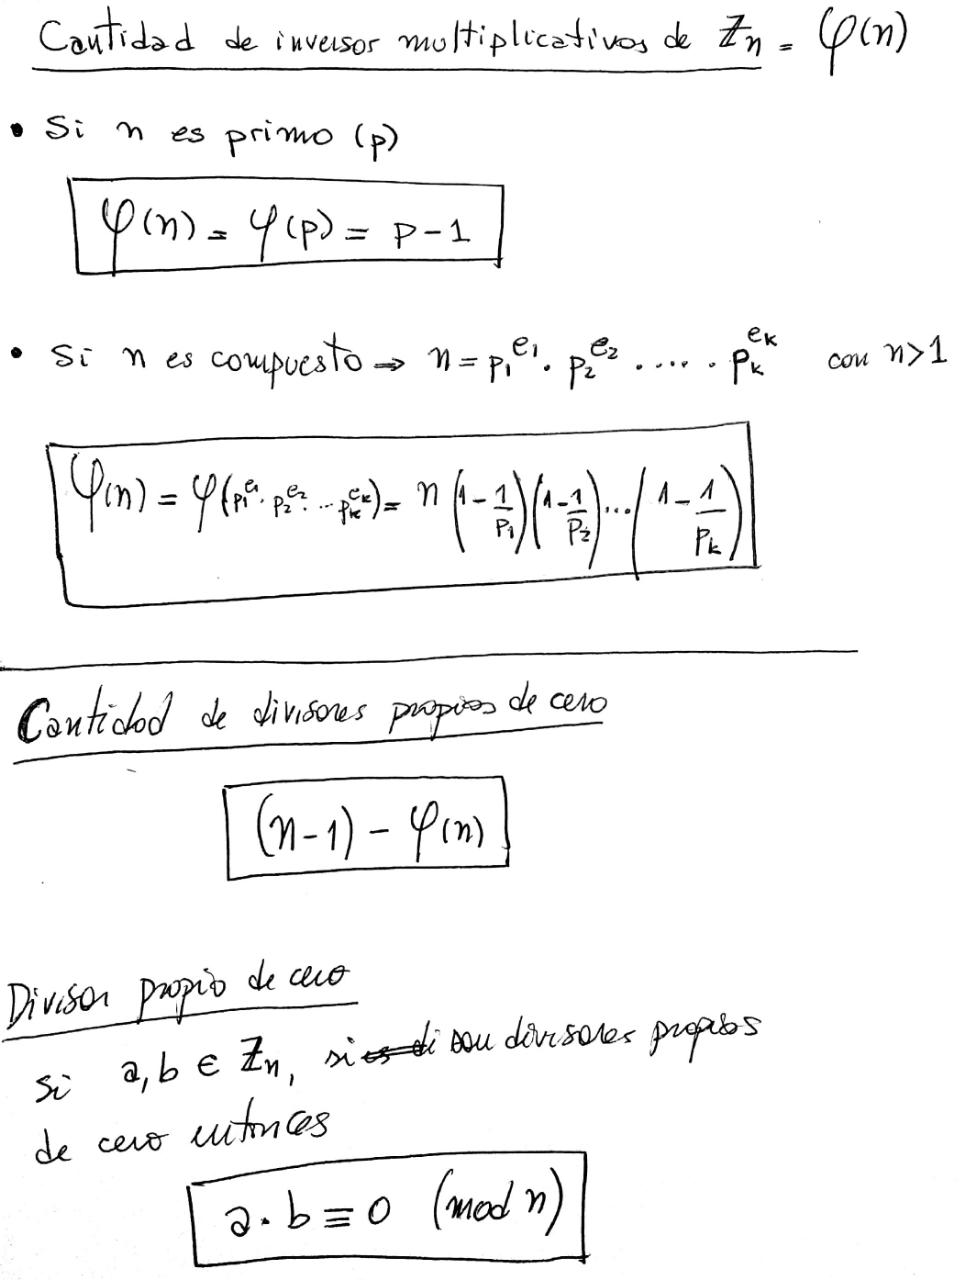 Cantidad de inversor multiplicativos de ℤn = φ(n)
• Si n es primo (p)
φ(n) = φ(p) = p-1
• Si n es compuesto ⇒ n = p₁^e₁ · p₂^e₂ · .... · pₖ^eₖ con n>1
φ(n) = φ(p₁^e₁ · p₂^e₂ · ... pₖ^eₖ) = n (1 - 1/p₁)(1 - 1/p₂)...(1 - 1/pₖ)
Cantidad de divisores propios de cero
(n-1) - φ(n)
Divisor propio de cero
Si a, b ∈ ℤn, si son divisores propios
de cero entonces
a · b ≡ 0 (mod n)